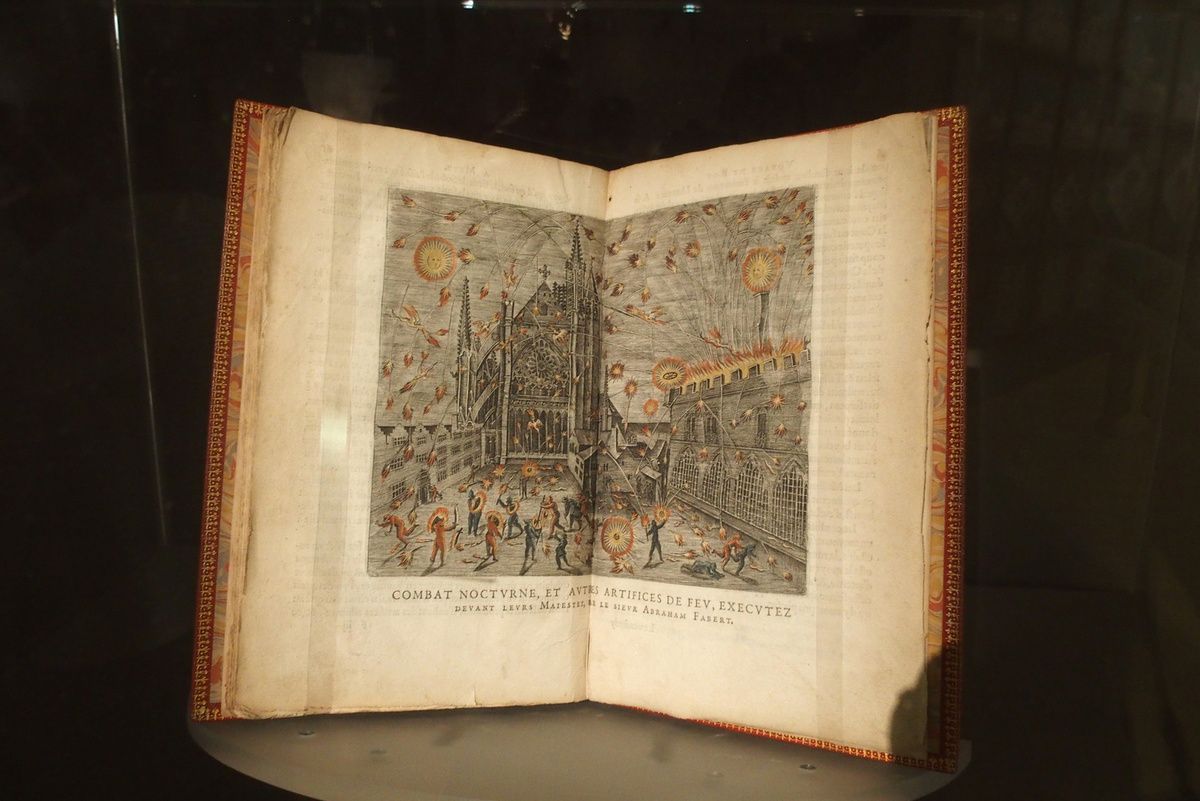 COMBAT NOCTVRNE, ET AVTRES ARTIFICES DE FEV, EXECVTEZ
DEVANT LEVRS MAIESTEZ, LE SIEVR ABRAHAM FABERT.